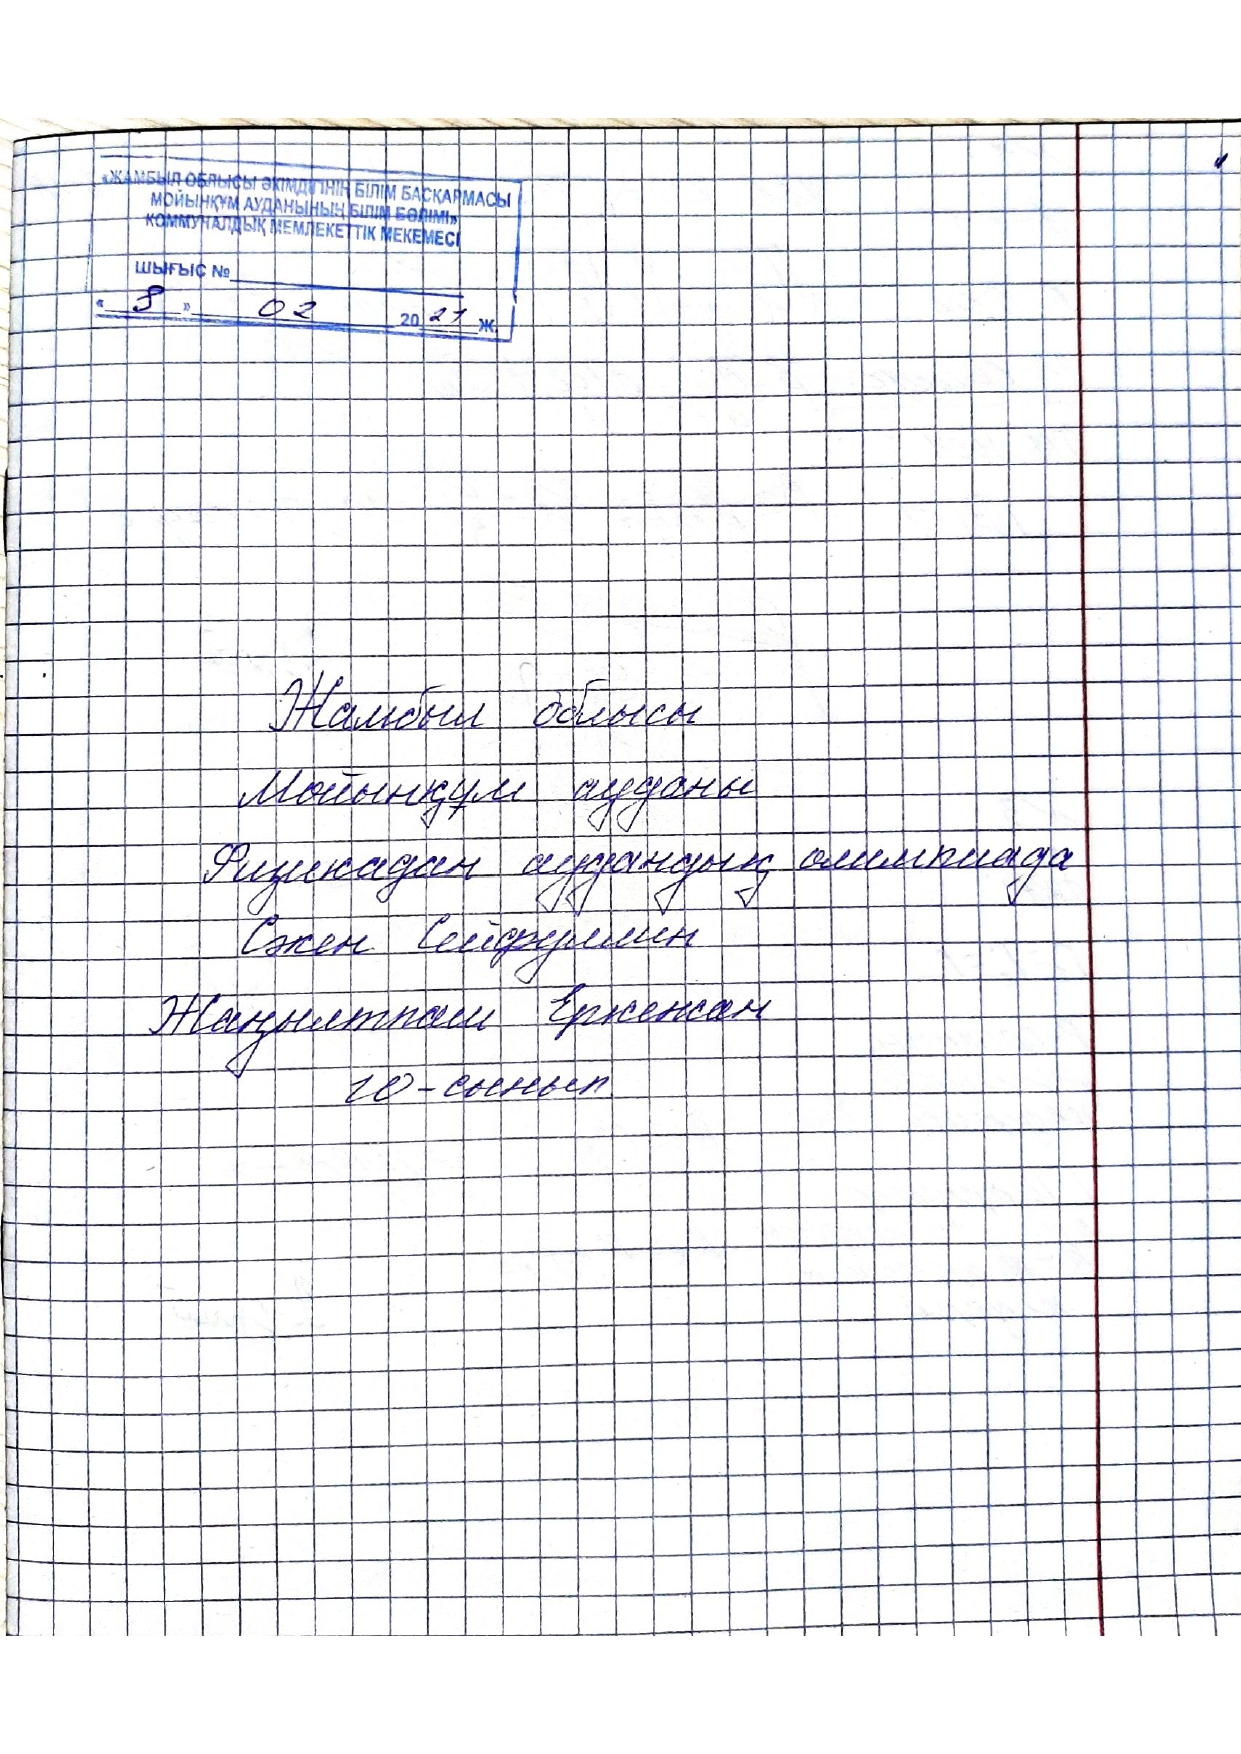 «ЖАМБЫЛ ОБЛЫСЫ ӘКІМДІГІНІҢ БІЛІМ БАСҚАРМАСЫ
МОЙЫНҚҰМ АУДАНЫНЫҢ БІЛІМ БӨЛІМІ»
КОММУНАЛДЫҚ МЕМЛЕКЕТТІК МЕКЕМЕСІ
ШЫҒЫС №
« 8 » 02 2021 Ж.
Жамбыл облысы
Мойынқұм ауданы
Физикадан аудандық олимпиада
Сәкен Сейфуллин
Жаңылтпаш Еркежан
10-сынып